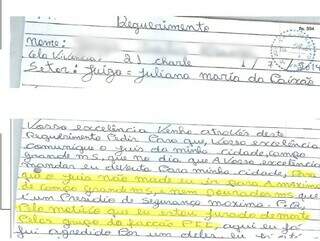 Requerimento
Nome:
Cela Vivência 2 charle 1 / 2014
Setor: Juízo = Juliana maria da Paixão
Vossa excelência Venho atravéis deste
Requerimento Pedir Para que, Vossa excelência
comunique o Juis da minha cidade, campo
grande ms, que no dia que A Vossa excelência
mandar eu debute Para minha cidade, Para
que o Juis não mande eu ir para A máxima
de campo grande ms, e nem Dourados ms que
é um Presídio de Segurança maxima. Pelo
Pelo motivo que eu estou jurado de morte
Pelos grupo da facção P.C.C, aqui eu já
fui agredido Por um deles, eu